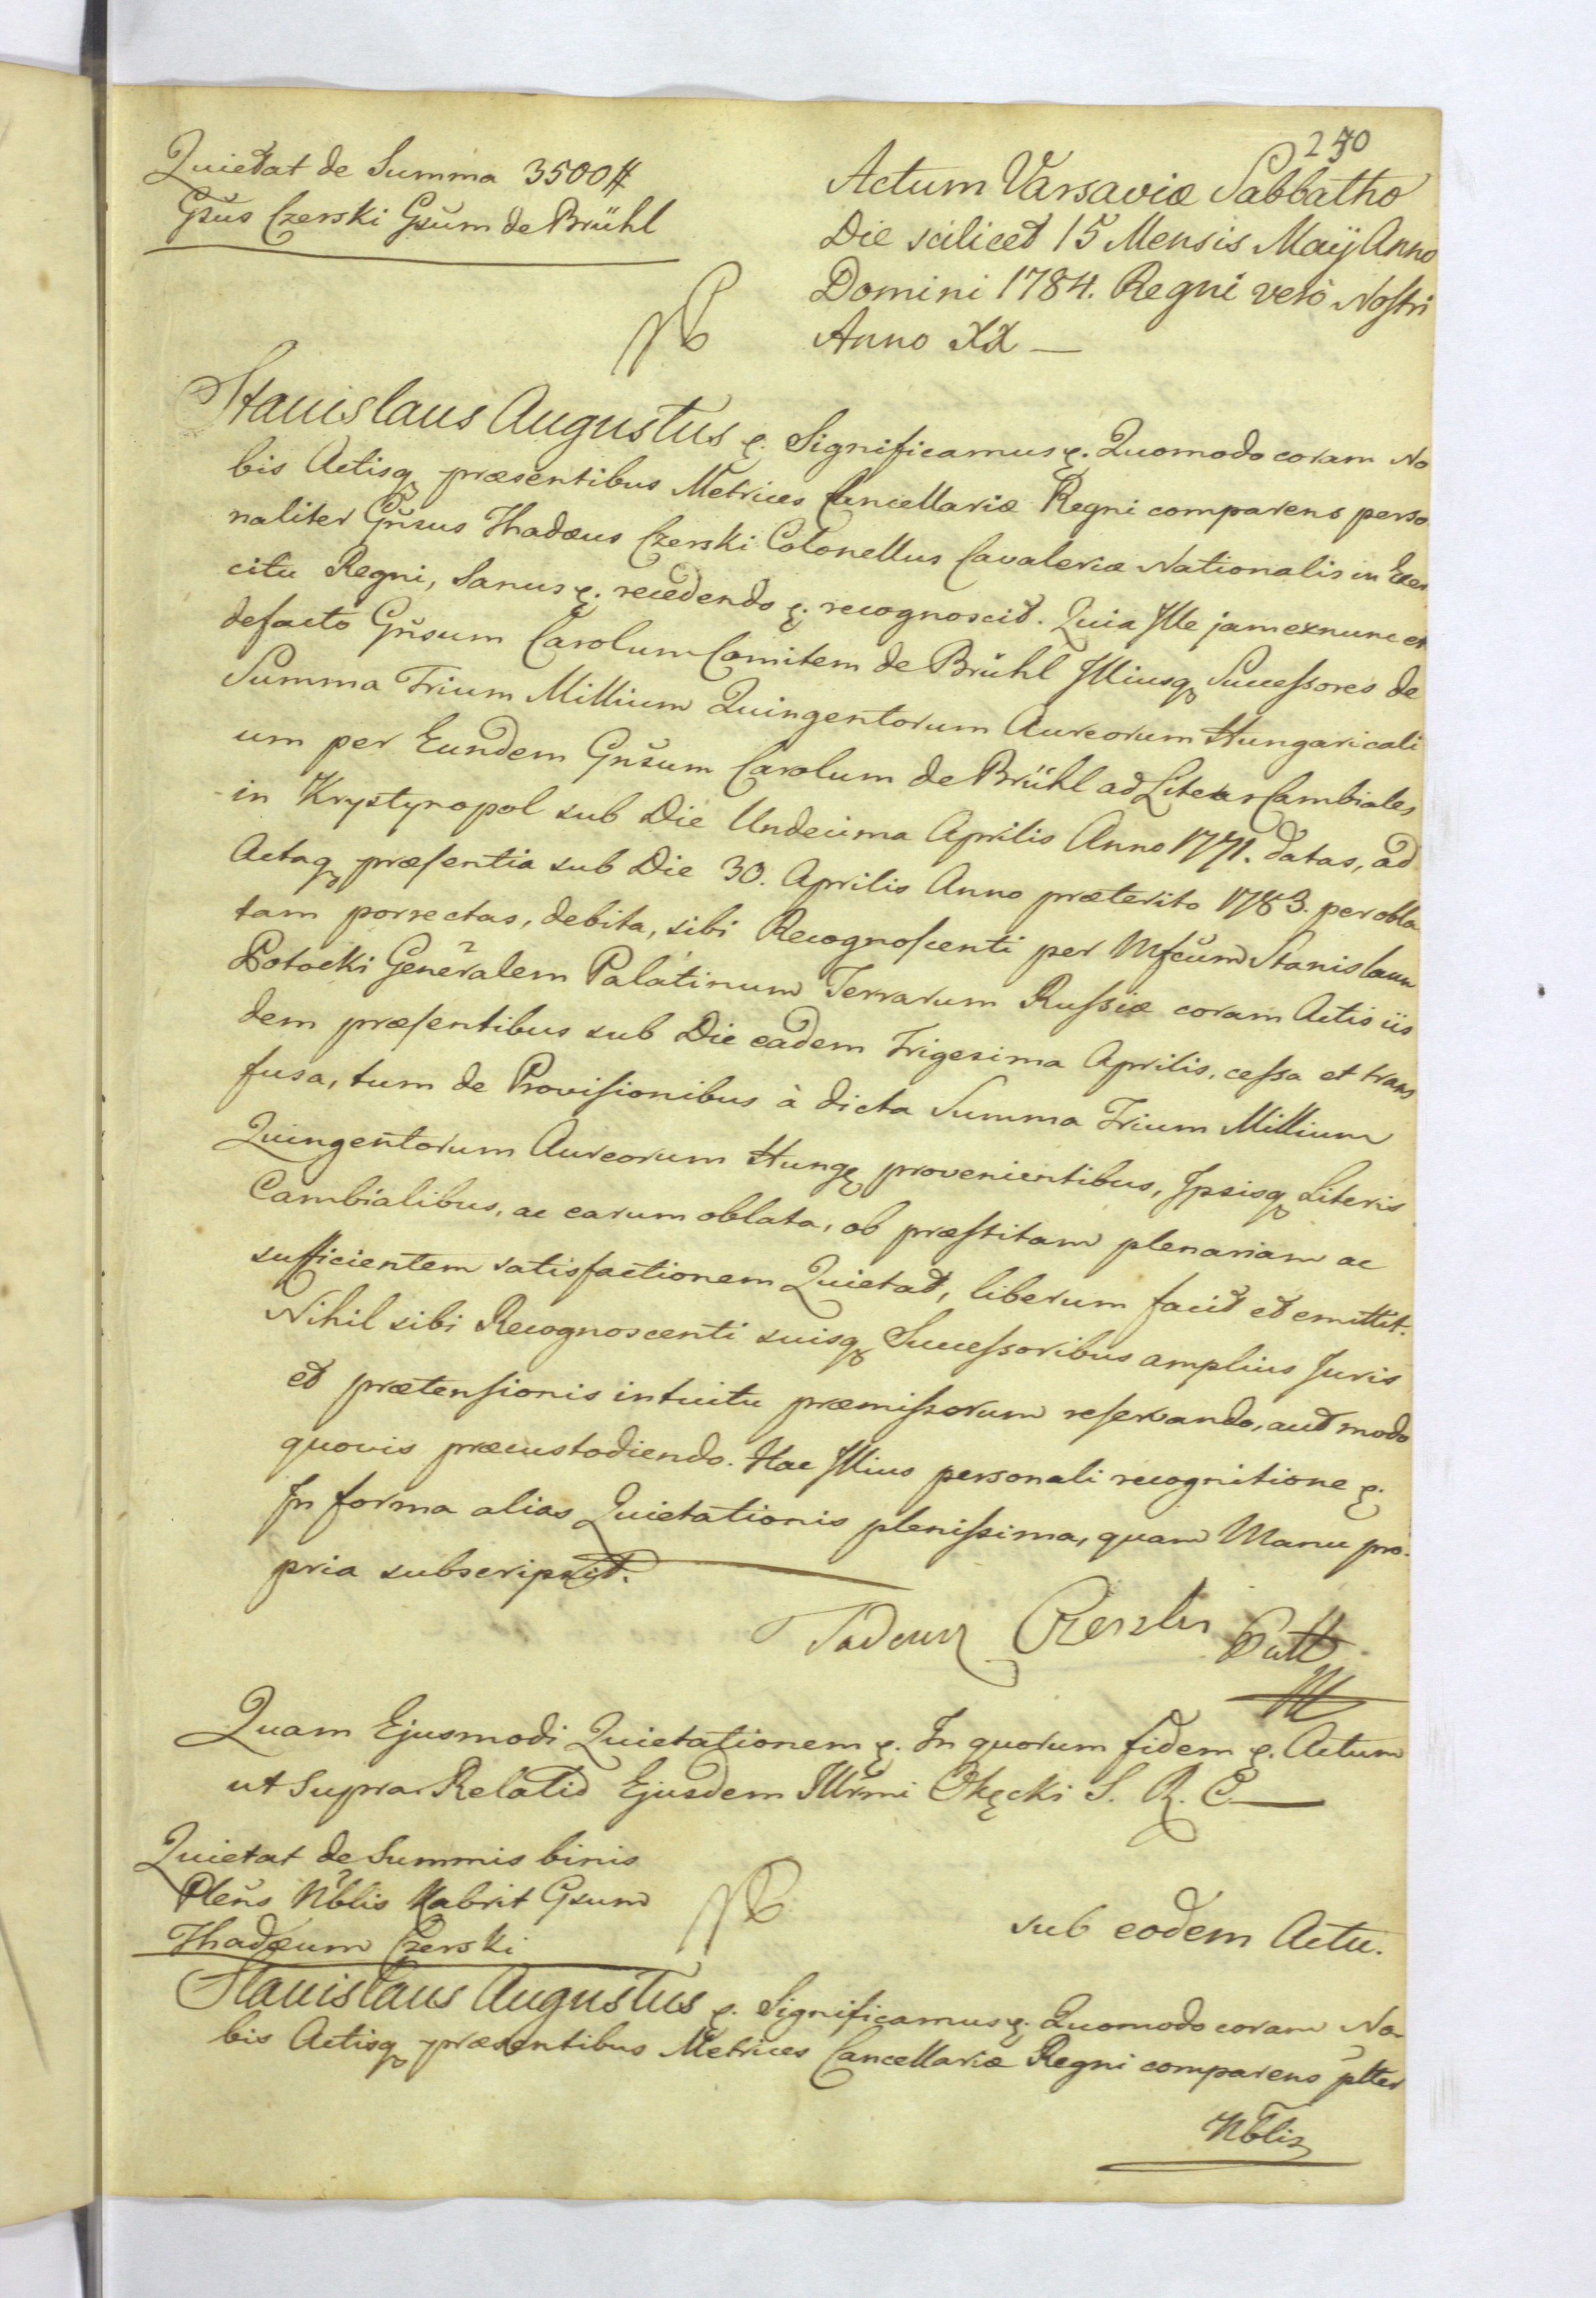 250
Quietat de Summa 3500 #
Gsus Czerski Gsum de Brühl
Actum Varsaviæ Sabbatho
Die scilicet 15 Mensis Maÿ Anno
Domini 1784. Regni verò Nostri
Anno XX —
Stanislaus Augustus &. Significamus &. Quomodo coram No
bis Actisq præsentibus Metrices Cancellariæ Regni comparens perso
naliter Gnsus Thadæus Czerski Colonellus Cavaleriæ Nationalis in Exer
citu Regni, Sanus &. recedendo &. recognoscit. Quia Ille jam exnunc et
defacto Gnsum Carolum Comitem de Brühl Illiusq Successores de
Summa Trium Millium Quingentorum Aureorum Hungaricali
um per Eundem Gnsum Carolum de Brühl ad Literas Cambiales
in Krystynopol sub Die Undecima Aprilis Anno 1771. datas, ad
Actaq præsentia sub Die 30. Aprilis Anno præterito 1783. per obla
tam porrectas, debita, sibi Recognoscenti per Mfcum Stanislaum
Potocki Generalem Palatinum Terrarum Russiæ coram Actis iis
dem præsentibus sub Die eadem Trigesima Aprilis, cessa et trans
fusa, tum de Provisionibus à dicta Summa Trium Millium
Quingentorum Aureorum Hung provenientibus, Ipsisq Literis
Cambialibus, ac earum oblata, ob præstitam plenariam ac
sufficientem satisfactionem Quietat, liberum facit et emittit.
Nihil sibi Recognoscenti suisq Successoribus amplius Juris
et prætensionis intuitu præmissorum reservando, aut modo
quovis præcustodiendo. Hac Illius personali recognitione &.
In forma alias Quietationis plenissima, quam Manu pro-
pria subscripsit.
Tadeusz Czerski
Quam Ejusmodi Quietationem &. In quorum fidem &. Actum
ut Supra Relatio Ejusdem Illrmi Okęcki S. R. C —
Quietat de Summis binis
Plens Nblis Kabrit Gsum
Thadæum Czerski
sub eodem Actu.
Stanislaus Augustus &. Significamus &. Quomodo coram No-
bis Actisq præsentibus Metrices Cancellariæ Regni comparens plter
Nblis